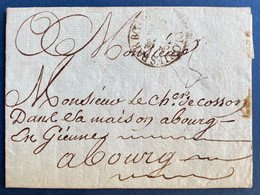 Monsieur
Monsieur le cher de cosson
Dans sa maison abourg
En Gienne
abourg